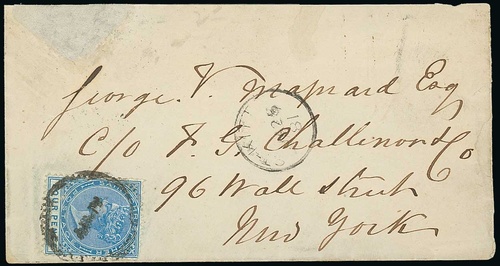 George. V. Maynard Esq
C/o F. G. Challenor & Co
96 Wall street
New York